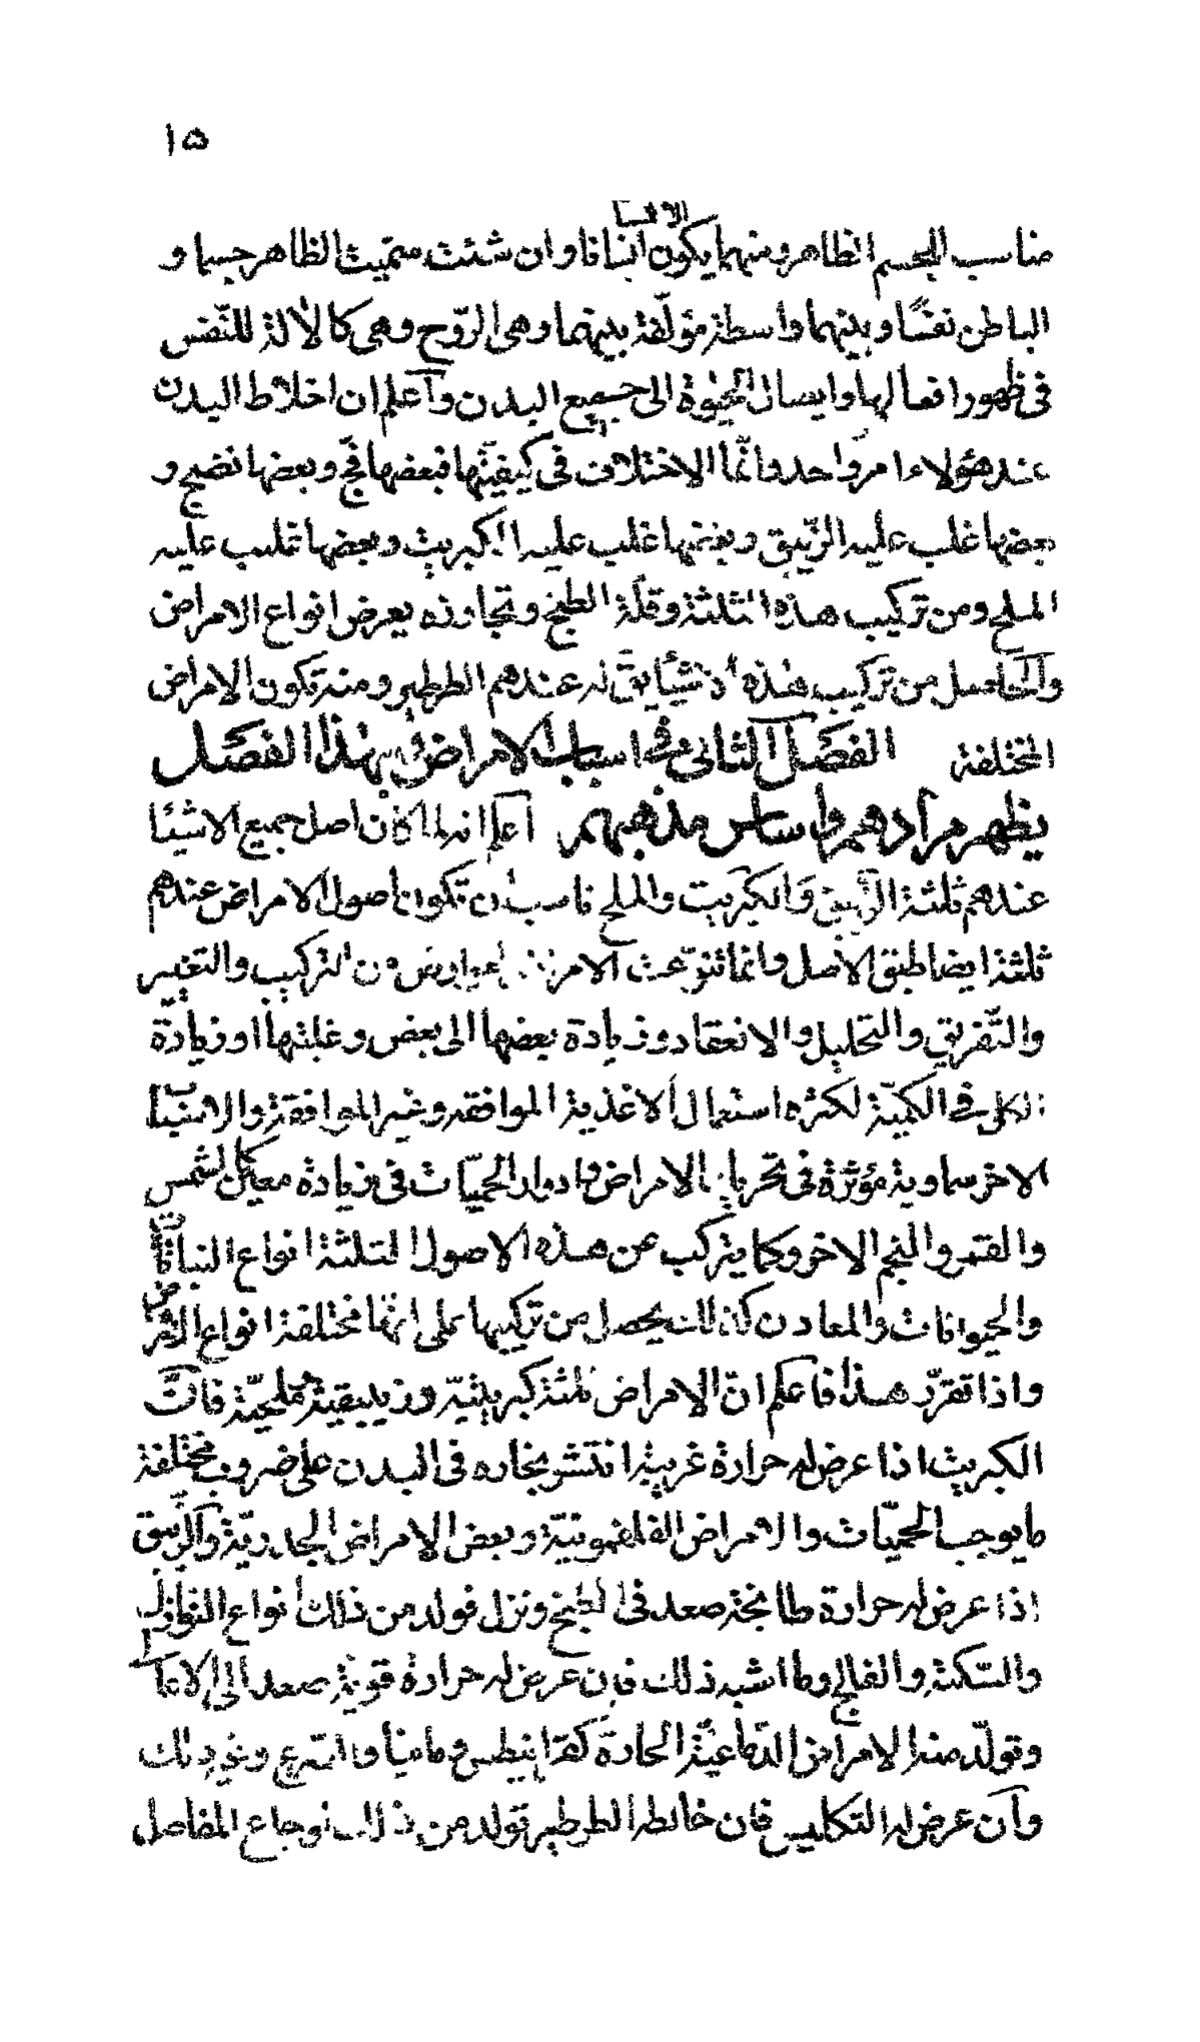 ١٥
مناسب للجسم الظاهر ومنهما يكون الانسان انسانا وان شئت سميت الظاهر جسما و
الباطن نفسًا وبينهما واسطة مؤلّفة بينهما وهى الرّوح وهى كالالة للنّفس
فى ظهور افعالها وايصال الحيوة الى جميع البدن وآعلم ان اخلاط البدن
عند هؤلاء امر واحد وانّما الاختلاف فى كيفيّتها فبعضها فجّ وبعضها نضيج و
بعضها غلب عليه الزّيبق وبعضها غلب عليه الكبريت وبعضها غلب عليه
الملح ومن تركيب هذه الثلثة وقلّة الطبخ وتجاوزه يعرض انواع الامراض
وآلحاصل من تركيب هذه شيئًا يق له عندهم الطرطير ومنه تكون الامراض
المختلفة الفصل الثانى فى اسباب الامراض وبهذا الفصل
يظهر مرادهم واساس مذهبهم آعلم انه لما كان اصل جميع الاشيا
عندهم ثلثة الزيبق والكبريت والملح ناسب ان تكون اصول الامراض عندهم
ثلثة ايضا طبق الاصل وانما تنوعت الامراض بعوارض من التركيب والتغيير
والتّفريق والتحليل والانعقاد وزيادة بعضها الى بعض وغلبتها او زيادة
الكل فى الكميّة لكثره استعمال الاغذية الموافقه وغير الموافقة والاسباب
الاخر سماوية مؤثرة فى تحريك الامراض وادوار الحميّات فى زيادة معينة كالشمس
والقمر والنجم الاخر وكما يتركب من هذه الاصول الثلثة انواع النباتات
والحيوانات والمعادن كذلك يحصل من تركيبها على انحا مختلفة انواع الامراض
واذا تقرّر هذا فاعلم انّ الامراض ثلثة كبريتيّه وزيبقيّة وملحيّة فانّ
الكبريت اذا عرض له حرارة غريبة انتشر بخاره فى البدن على ضروب مختلفة
ما يوجب الحميّات والامراض الفلغمونيّة وبعض الامراض الجدريّة وآلزّيبق
اذا عرض له حرارة طابخة صعد فى الطبخ ونزل فولد من ذلك انواع النوازل
والسّكتة والفالج وما اشبه ذلك فان عرض له حرارة قوية صعد الى الاعلا
وتولّد منه الامراض الدّماغيّة الحارة كقرانيطس ومانيا والصرع ونحو ذلك
وآن عرض له التكليس فان خالطه الطرطير تولد من ذلك اوجاع المفاصل